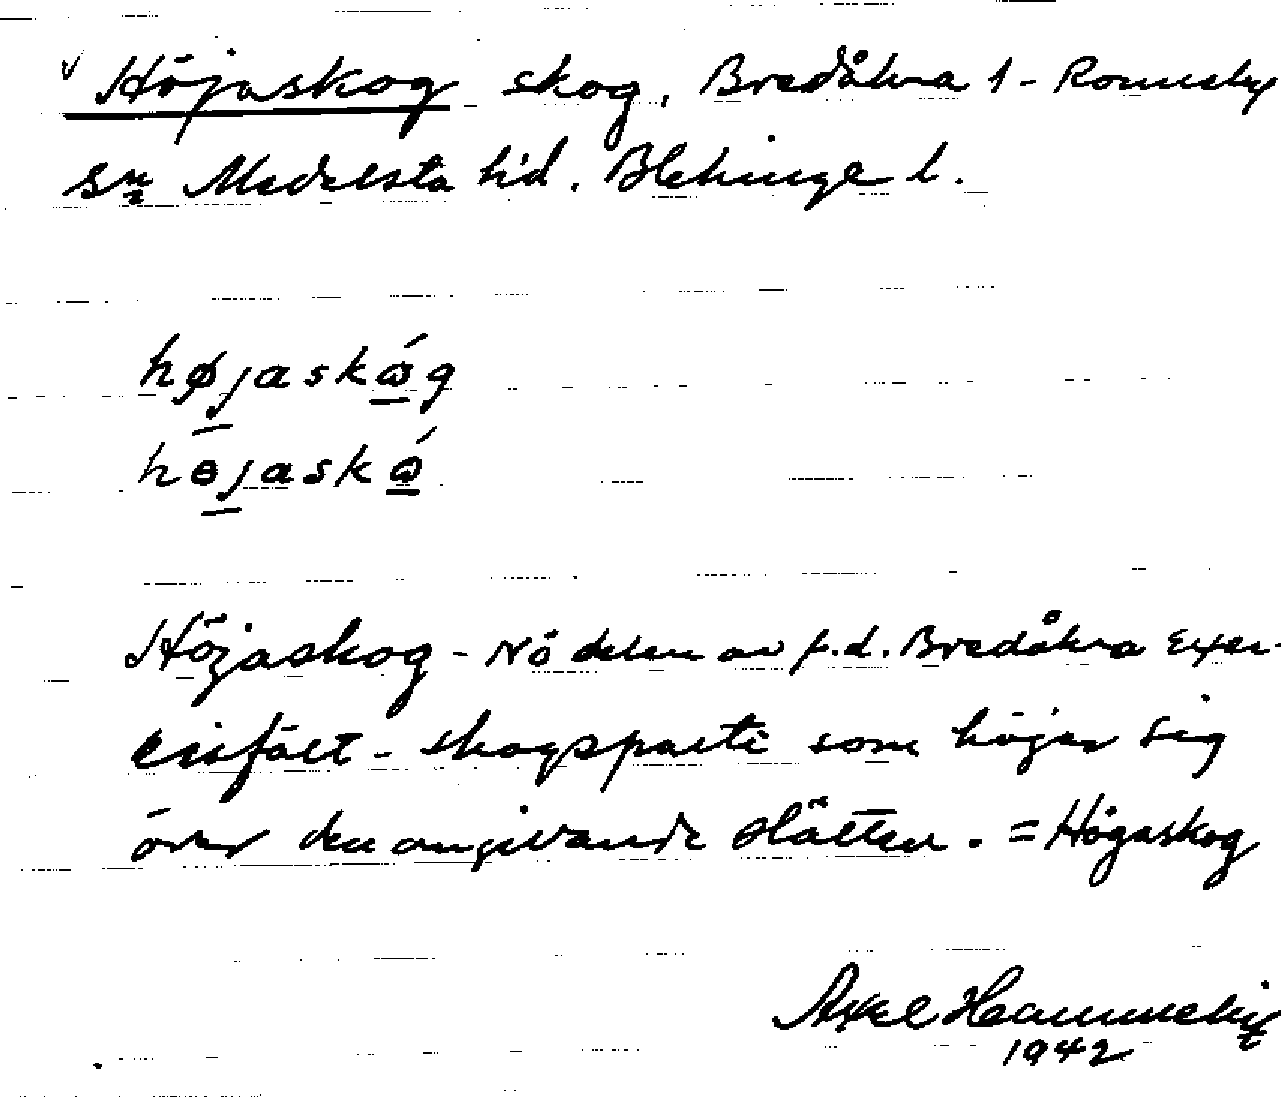 Höjaskog skog, Bredåkra 1 - Ronneby
sn Medelsta hd. Blekinge l.
højaskóg
hɵjaskó
Höjaskog - NÖ delen av f.d. Bredåkra Exer-
cisfält - skogsparti som höjer sig
över den omgivande slätten. = Högaskog
Axel
1942